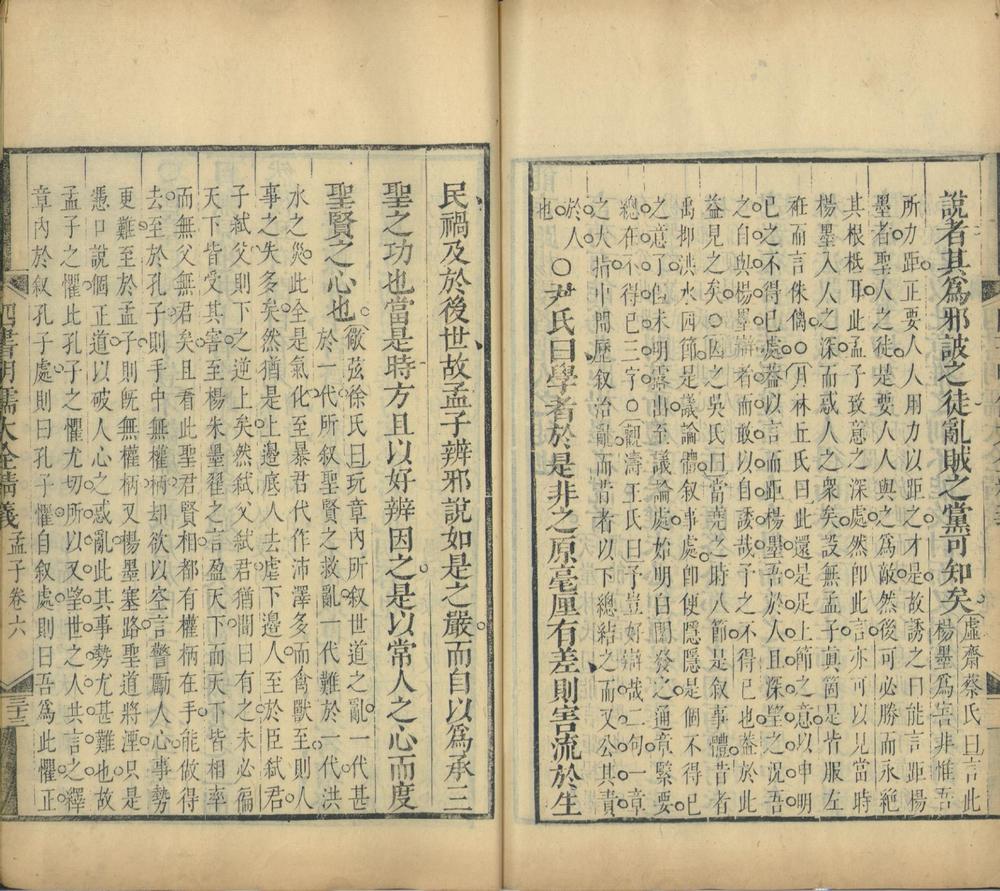 說者其爲邪詖之徒亂賊之黨可知矣
虛齋蔡氏曰言此
楊墨爲害非惟吾
所力距正要人人用力以距之才是故誘之曰能言距楊
墨者聖人之徒是要人人與之爲敵然後可必勝而永絶
其根柢耳此孟子致意之深處然卽此言亦可以見當時
楊墨入人之深而惑人之衆矣設無孟子眞箇是皆服左
衽而言侏㒧○月林丘氏曰此還是足上節之意以申明
已之不得已處葢以言而距楊墨吾於人且深望之況吾
之自與楊墨辯者而敢以自諉哉予之不得已也葢於此
益見之矣○因之吳氏曰當堯之時八節是叙事體昔者
禹抑洪水四節是議論體叙事處卽便隱隱是個不得已
之意了但未明露出至議論處始明白闡發之通章緊要
總在不得已三字○觀濤王氏曰予豈好辯哉二句一章
之大指中間歷叙治亂而昔者以下總結之而又公其責
於人○尹氏曰學者於是非之原毫厘有差則害流於生
也
民禍及於後世故孟子辨邪說如是之嚴而自以爲承三
聖之功也當是時方且以好辨因之是以常人之心而度
聖賢之心也
儆弦徐氏曰玩章內所叙世道之亂一代甚
於一代所叙聖賢之救亂一代難於一代洪
水之災此全是氣化至暴君代作沛澤多而禽獸至則人
事之失多矣然猶是上邊底人去虐下邊人至於臣弑君
子弑父則下之逆上矣然弑父弑君猶間曰有之未必徧
天下皆受其害至楊朱墨翟之言盈天下而天下皆相率
而無父無君矣且看此聖君賢相都有權柄在手能做得
去至於孔子則手中無權柄却欲以空言警斷人心事勢
更難至於孟子則旣無權柄又楊墨塞路聖道將湮只是
憑口說個正道以破人心之惑亂此其事勢尤甚難也故
孟子之懼此孔子之懼尤切所以又望世之人共言之釋
章內於叙孔子處則曰孔子懼自叙處則曰吾爲此懼正
四書明儒大全精義
孟子卷六
三十三